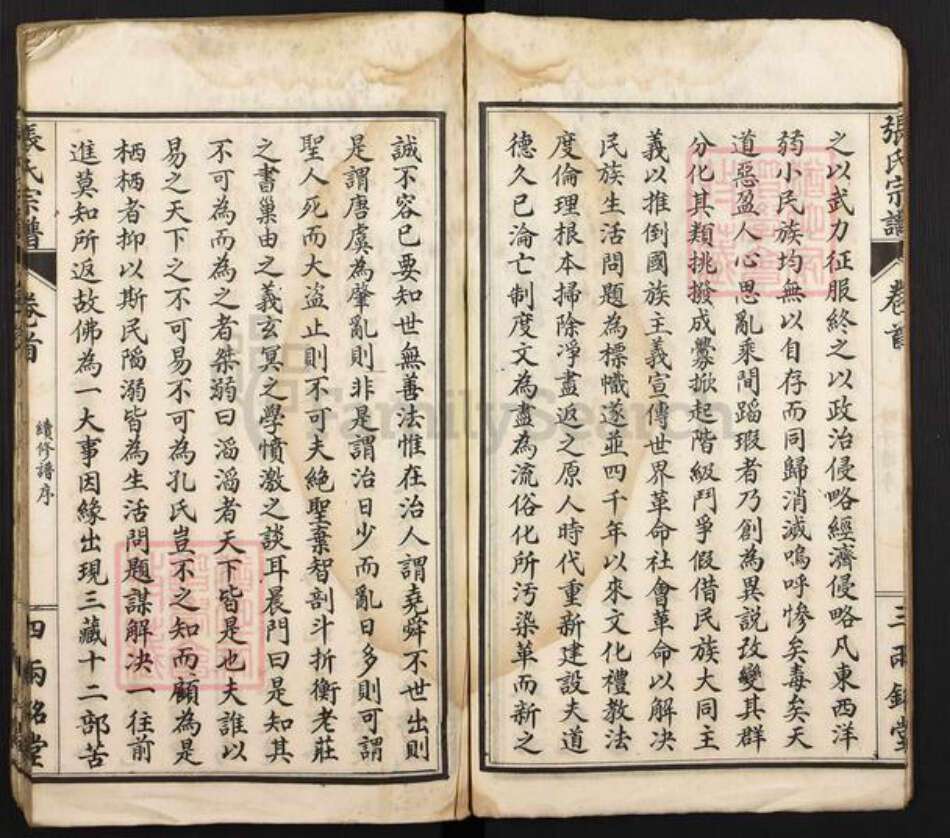 張氏宗譜
卷首
三
兩銘堂
之以武力征服終之以政治侵略經濟侵略凡東西洋
弱小民族均無以自存而同歸消滅嗚呼慘矣毒矣天
道惡盈人心思亂乘間蹈瑕者乃創為異説改變其群
分化其類挑撥成釁掀起階級鬥爭假借民族大同主
義以推倒國族主義宣傳世界革命社會革命以解决
民族生活問題為標幟遂並四千年以來文化禮教法
度倫理根本掃除凈盡返之原人時代重新建設夫道
德久已淪亡制度文為盡為流俗化所污染革而新之
誠不容已要知世無善法惟在治人謂堯舜不世出則
是謂唐虞為肇亂則非是謂治日少而亂日多則可謂
聖人死而大盜止則不可夫絶聖棄智剖斗折衡老莊
之書巢由之義玄冥之學憤激之談耳晨門曰是知其
不可為而為之者桀溺曰滔滔者天下皆是也夫誰以
易之天下之不可易不可為孔氏豈不之知而顧為是
栖栖者抑以斯民陷溺皆為生活問題謀解决一往前
進莫知所返故佛為一大事因緣出現三藏十二部苦
張氏宗譜
卷首
續修譜序
四
兩銘堂
FamilySearch